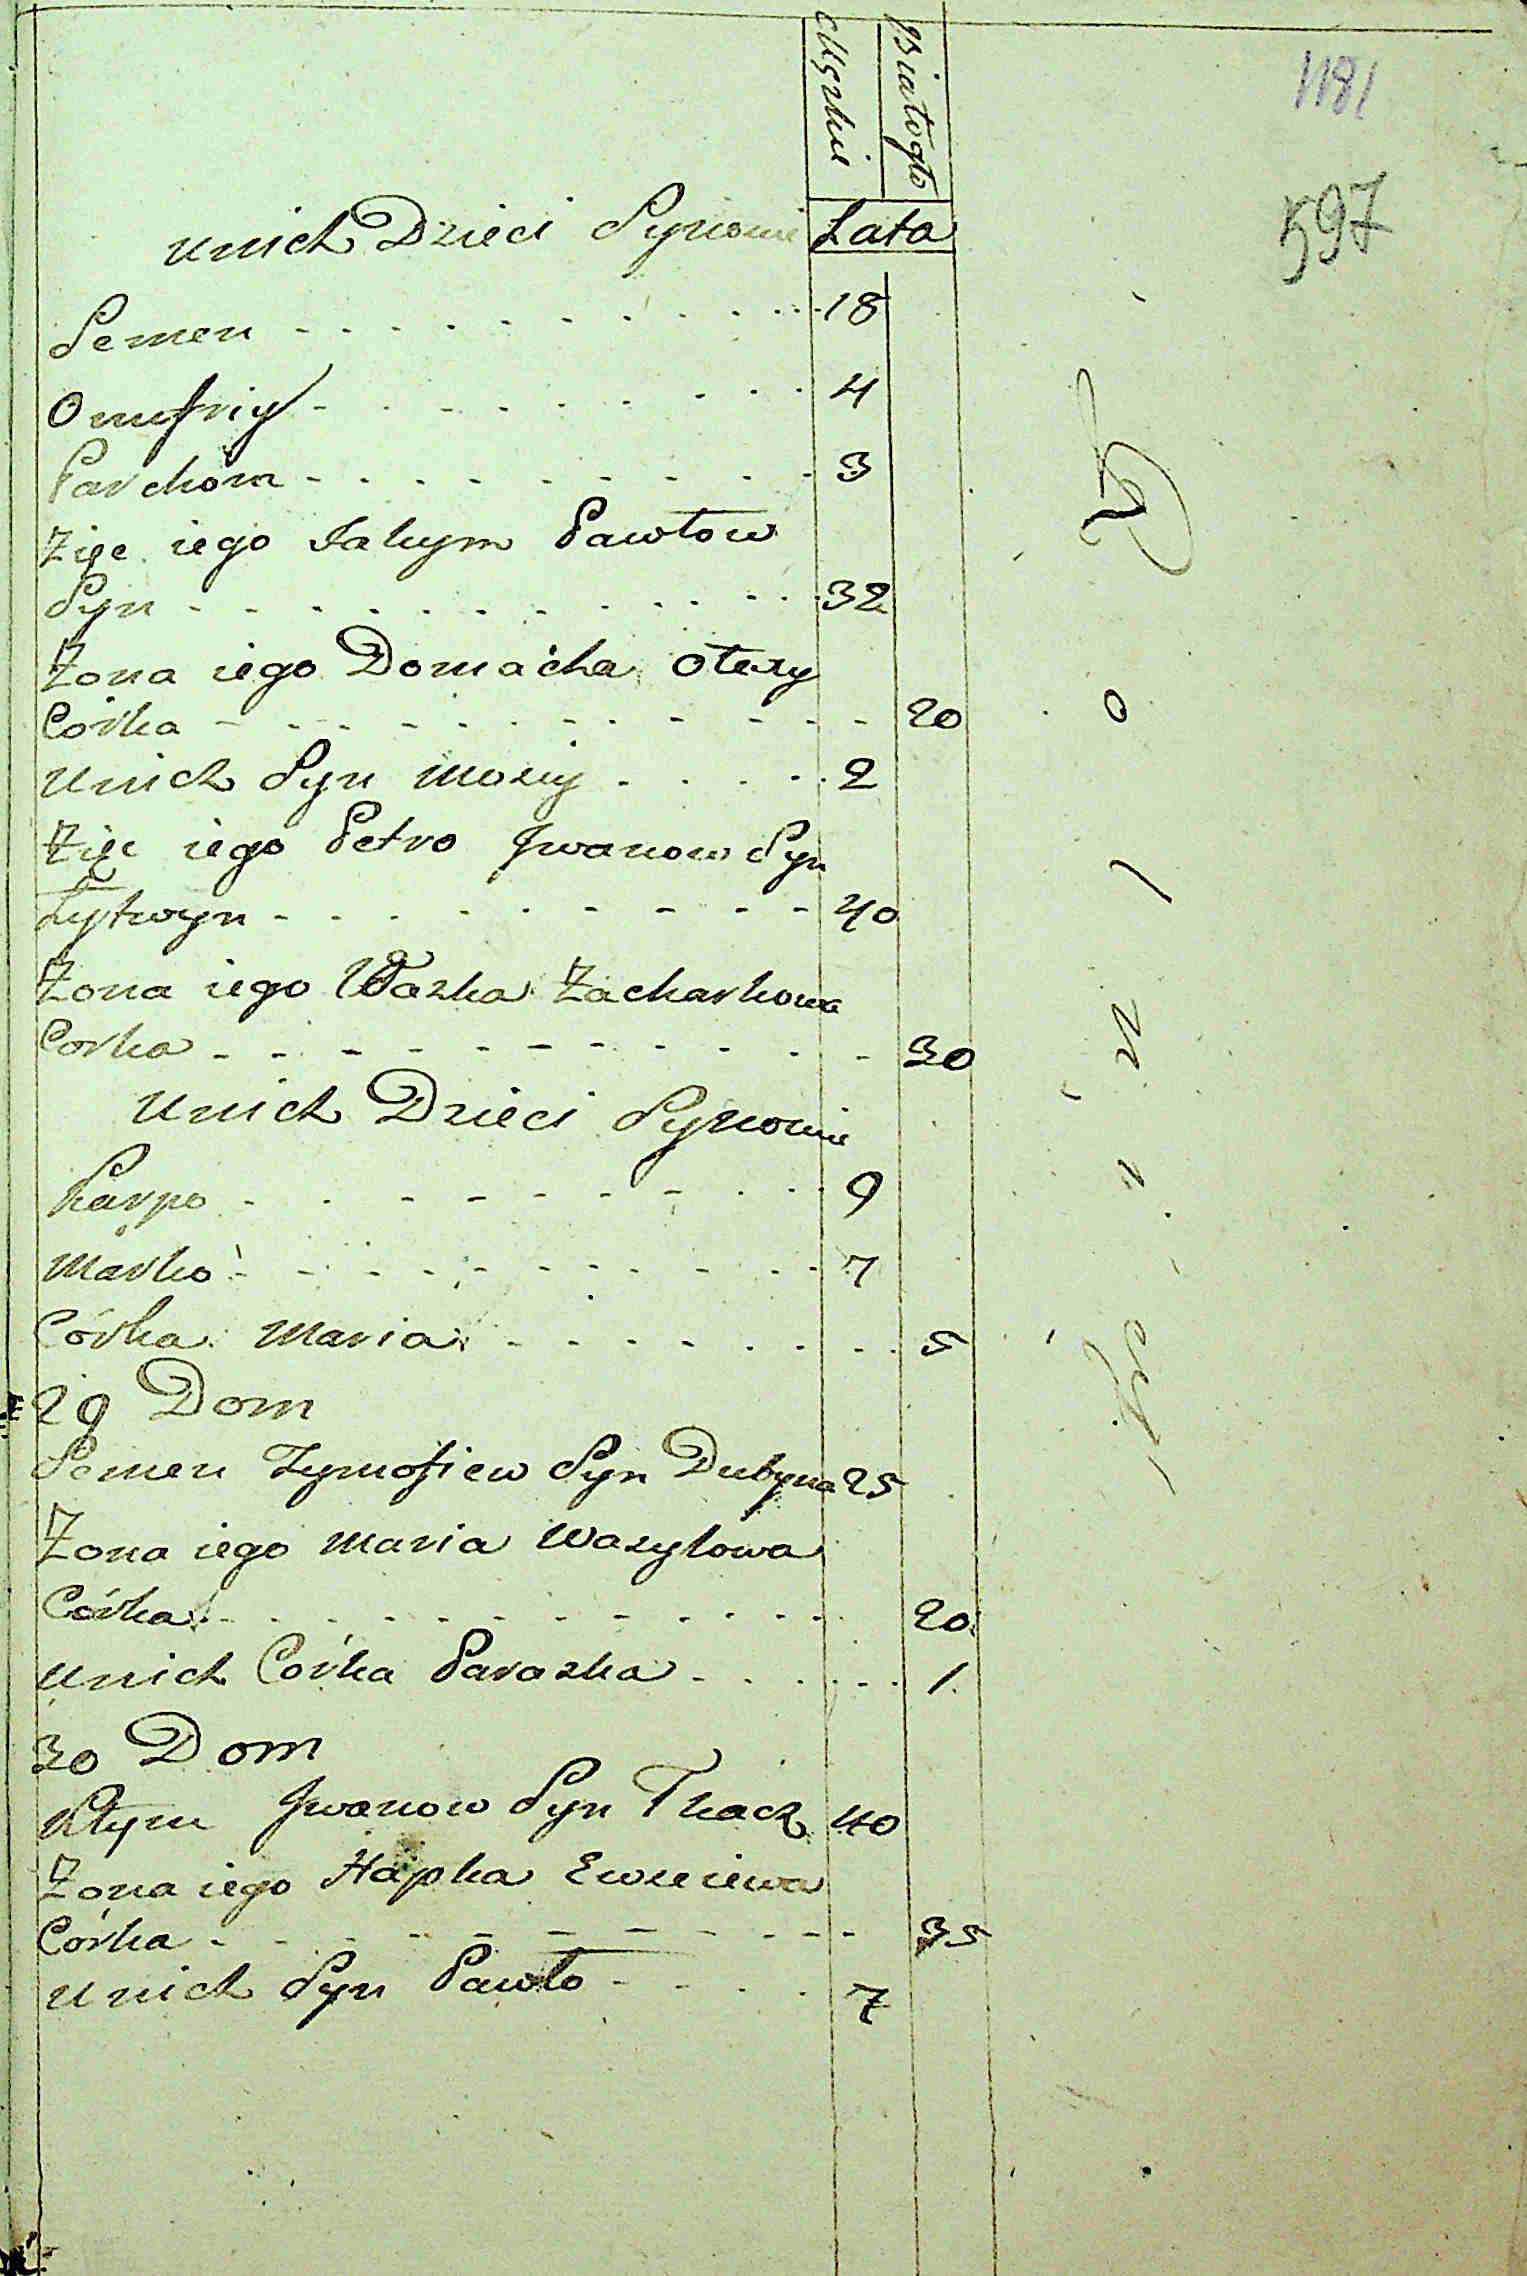 Męzkie Białogło
1181
597
Lata
unich Dzieci Synowie
Semen 18
Onufriy 4
Parchom 3
Zięc iego Jakym Pawłow
Syn 32
Żona iego Domacha Olexy
Córka 20
unich Syn Mosiy 2
Zięc iego Petro Jwanow Syn
Łytwyn 40
Żona iego Waska Zacharkowa
Corka 30
unich Dzieci Synowie
Karpo 9
Marko 7
Córka Maria 5
29 Dom
Semen Tymofiew Syn Dubyna 25
Żona iego Maria Wasylowa
Córka 20
unich Corka Paraska 1
30 Dom
Kłym Jwanow Syn Tkacz 40
Żona iego Hapka
Córka 35
unich Syn Pawło 7